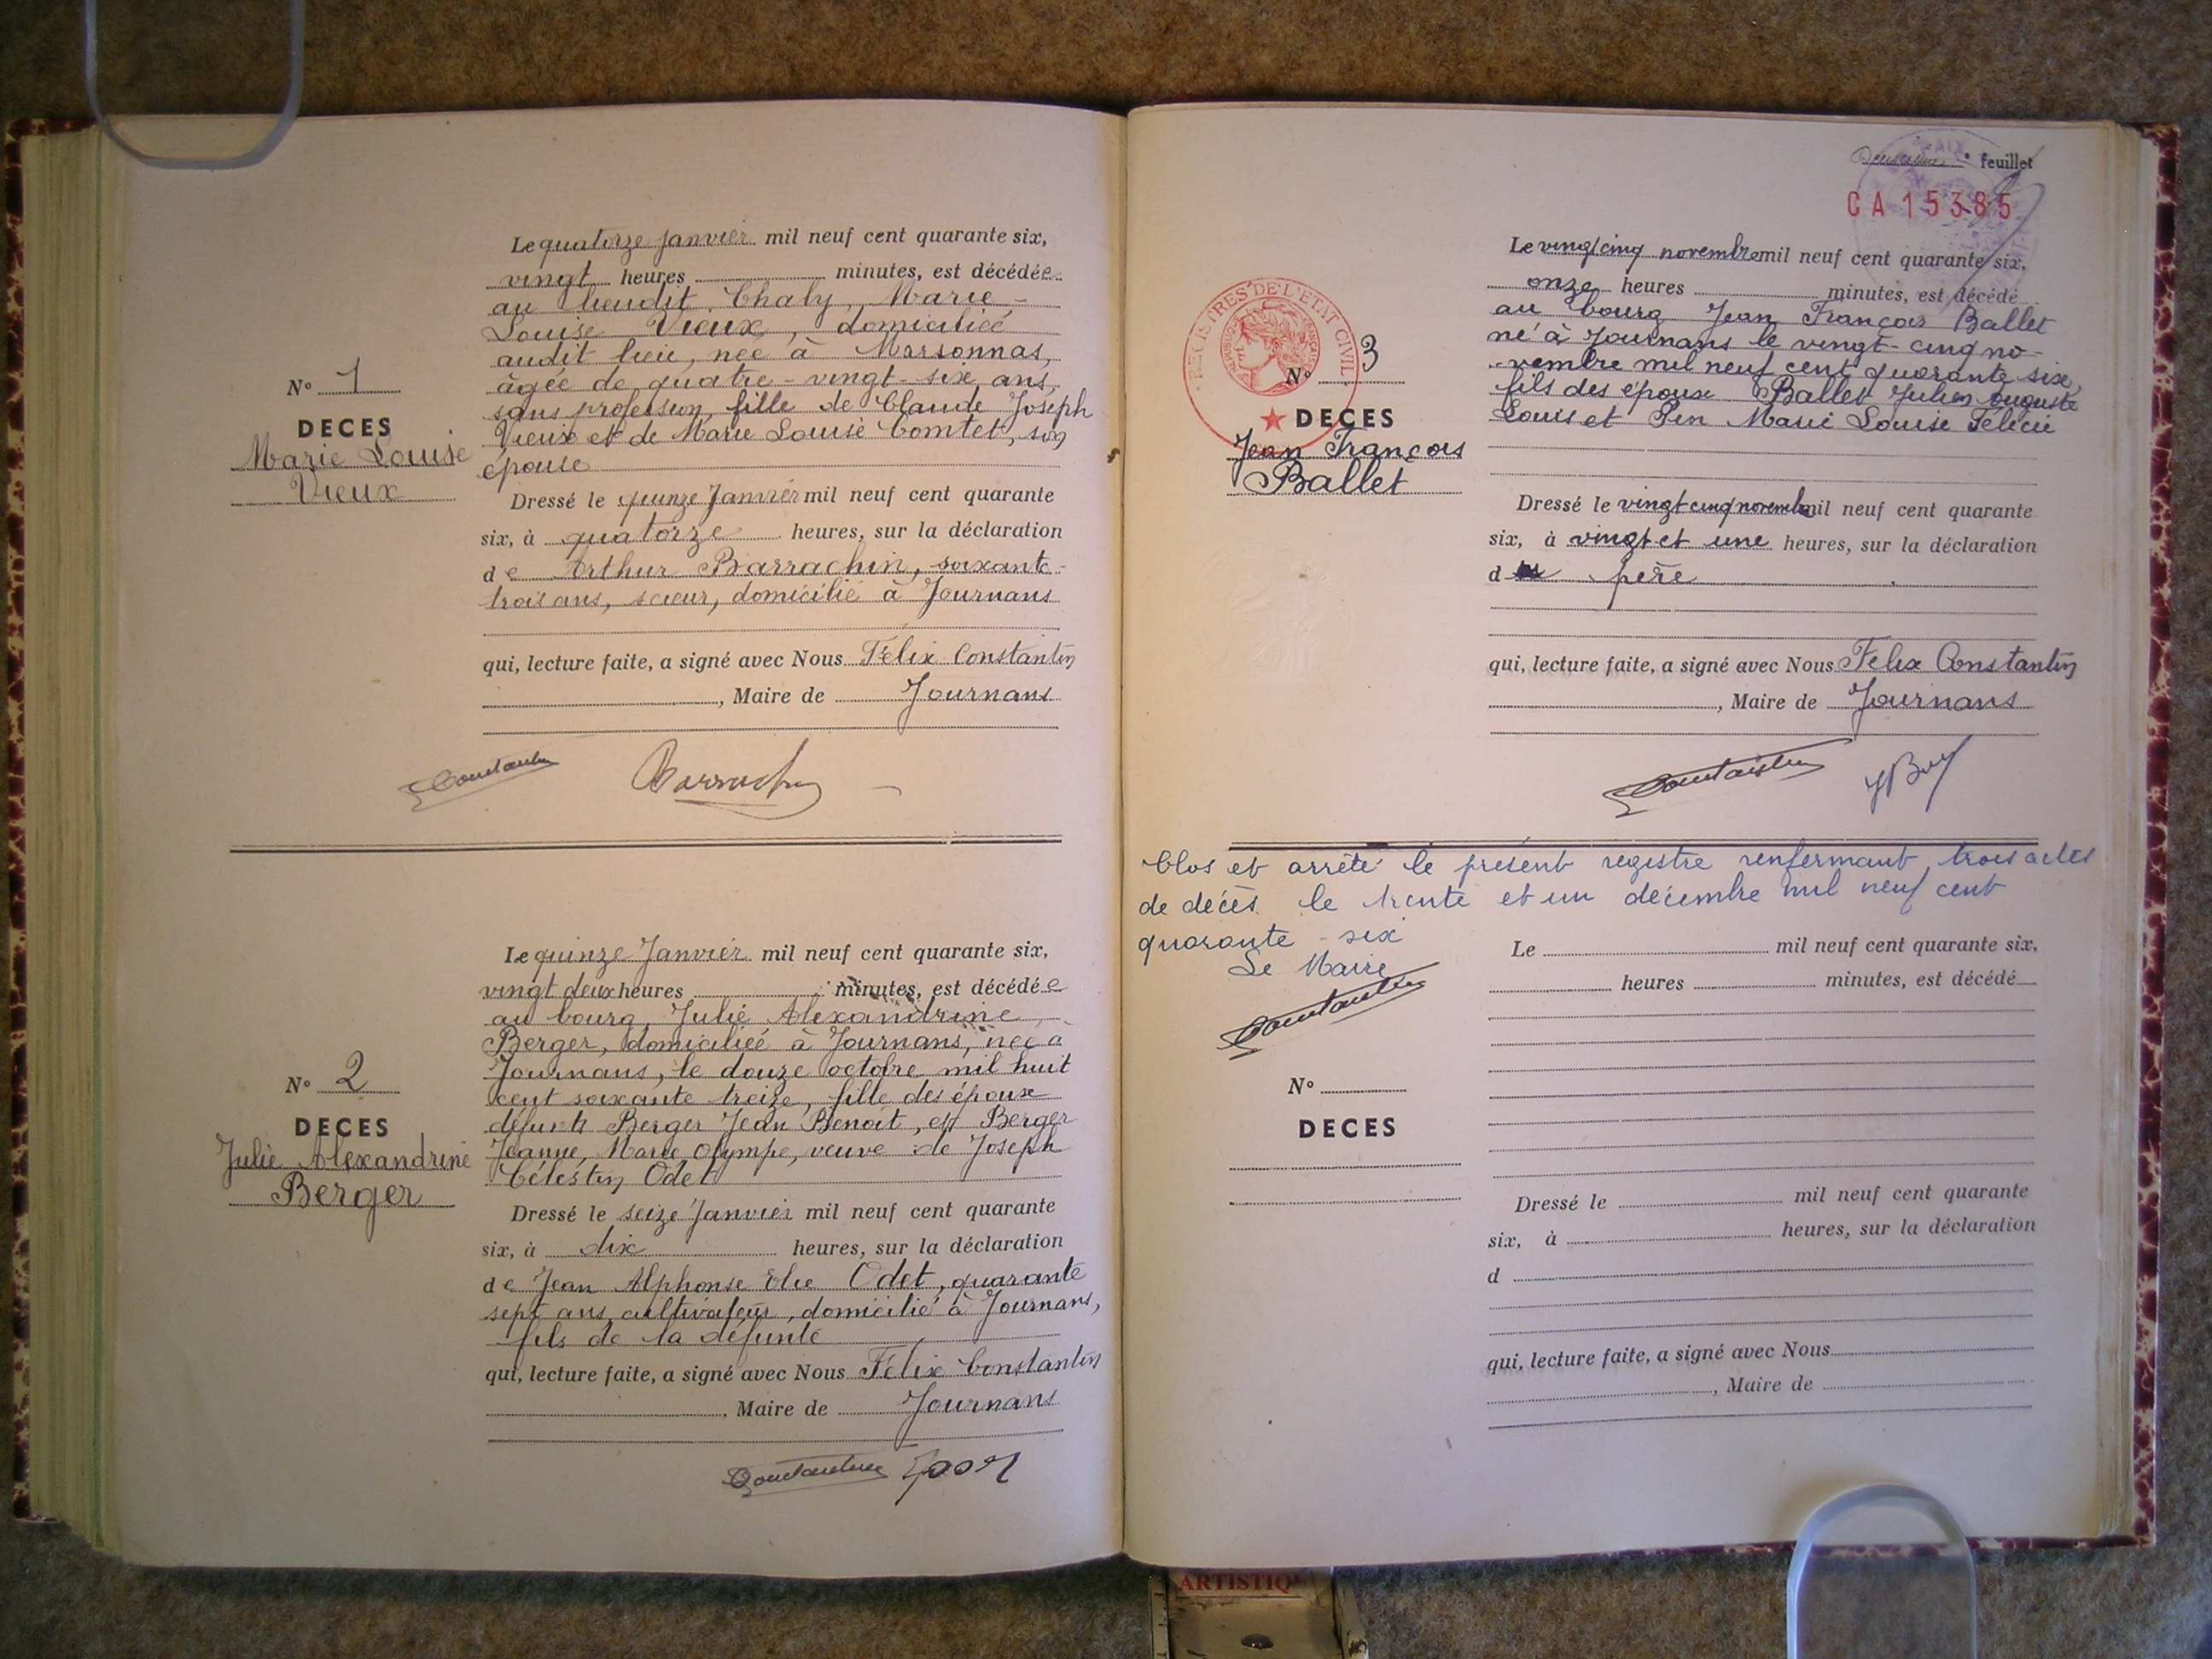 Le quatorze janvier mil neuf cent quarante six,
vingt heures minutes, est décédée
au lieudit Chaly, Marie
Louise Vieux, domiciliée
audit lieu, née à Marsonnas,
âgée de quatre-vingt-six ans,
sans profession, fille de Claude Joseph
Vieux et de Marie Louise Comtet, son
épouse
N° 1
DECES
Marie Louise
Vieux
Dressé le quinze Janvier mil neuf cent quarante
six, à quatorze heures, sur la déclaration
de Arthur Barrachin, soixante-
trois ans, scieur, domicilié à Journans
qui, lecture faite, a signé avec Nous Félix Constantin
, Maire de Journans
Constantin Barrachin
Le quinze Janvier mil neuf cent quarante six,
vingt deux heures minutes, est décédée
au bourg, Julie Alexandrine
Berger, domiciliée à Journans, née à
Journans, le douze octobre mil huit
cent soixante treize, fille des époux
défunts Berger Jean Benoit, et Berger
Jeanne, Marie Olympe, veuve de Joseph
Célestin Odet
N° 2
DECES
Julie Alexandrine
Berger
Dressé le seize Janvier mil neuf cent quarante
six, à dix heures, sur la déclaration
de Jean Alphonse Elie Odet, quarante
sept ans, cultivateur, domicilié à Journans,
fils de la défunte
qui, lecture faite, a signé avec Nous Félix Constantin
, Maire de Journans
Constantin
feuillet
CA 15385
Le vingt cinq novembre mil neuf cent quarante six,
onze heures minutes, est décédé
au bourg Jean François Ballet
né à Journans le vingt-cinq no-
vembre mil neuf cent quarante six,
fils des époux Ballet Julien Auguste
Louis et Pin Marie Louise Félicie
REGISTRES DE L'ETAT CIVIL
N° 3
DECES
Jean François
Ballet
Dressé le vingt cinq novembre mil neuf cent quarante
six, à vingt et une heures, sur la déclaration
d père
qui, lecture faite, a signé avec Nous Félix Constantin
, Maire de Journans
Constantin
Clos et arrêté le présent registre renfermant trois actes
de décès le trente et un décembre mil neuf cent
quarante-six
Le Maire
Constantin
Le mil neuf cent quarante six,
heures minutes, est décédé
N°
DECES
Dressé le mil neuf cent quarante
six, à heures, sur la déclaration
d
qui, lecture faite, a signé avec Nous
, Maire de
ARTISTIQ